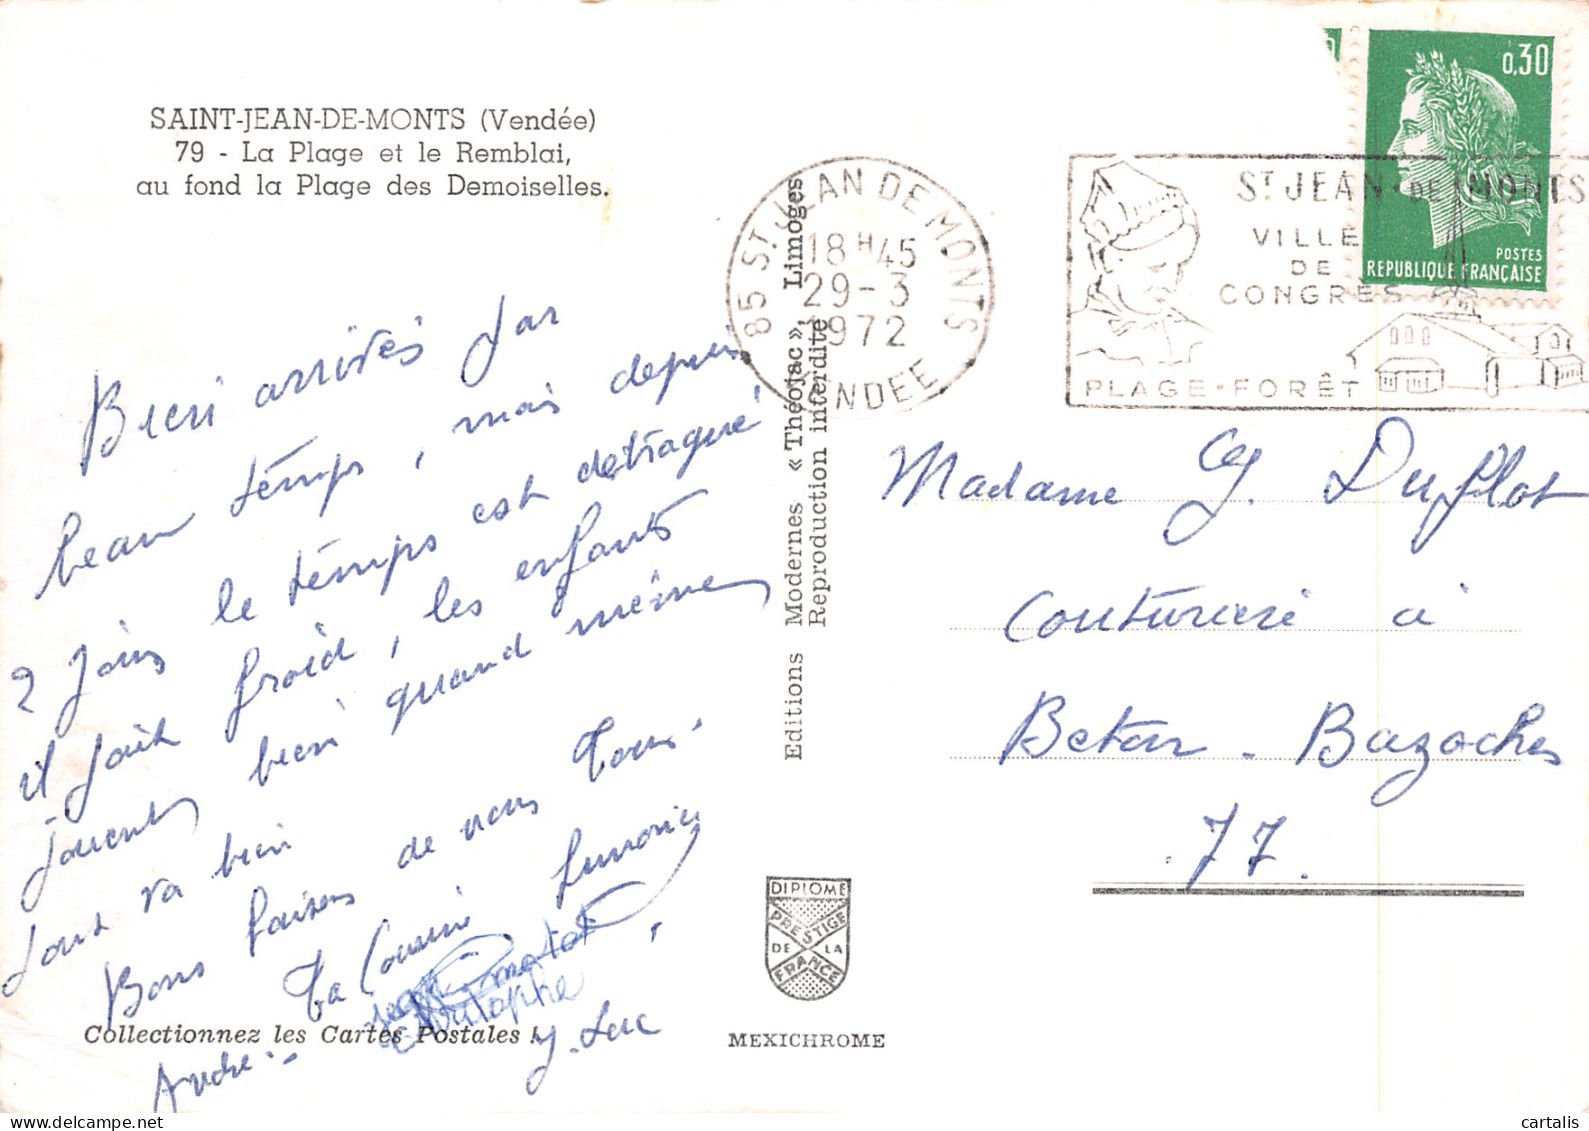 SAINT-JEAN-DE-MONTS (Vendée)
79 - La Plage et le Remblai,
au fond la Plage des Demoiselles.
Bien arrivés par
beau temps, mais depuis
2 jours le temps est détraqué
il fait froid, les enfants
jouent bien quand même
tout va bien
Bons baisers de nous tous.
Ta Cousine
Christophe
André
J. Luc
Collectionnez les Cartes Postales !
Editions Modernes « Théojac », Limoges
Reproduction interdite
DIPLOME
PRESTIGE
DE LA
FRANCE
MEXICHROME
85 ST JEAN DE MONTS
18 H 45
29-3
1972
VENDEE
ST JEAN DE MONTS
VILLE
DE
CONGRES
PLAGE-FORÊT
0,30
POSTES
REPUBLIQUE FRANÇAISE
Madame G. Duflot
Couturière à
Beton-Bazoches
77.
cartalis